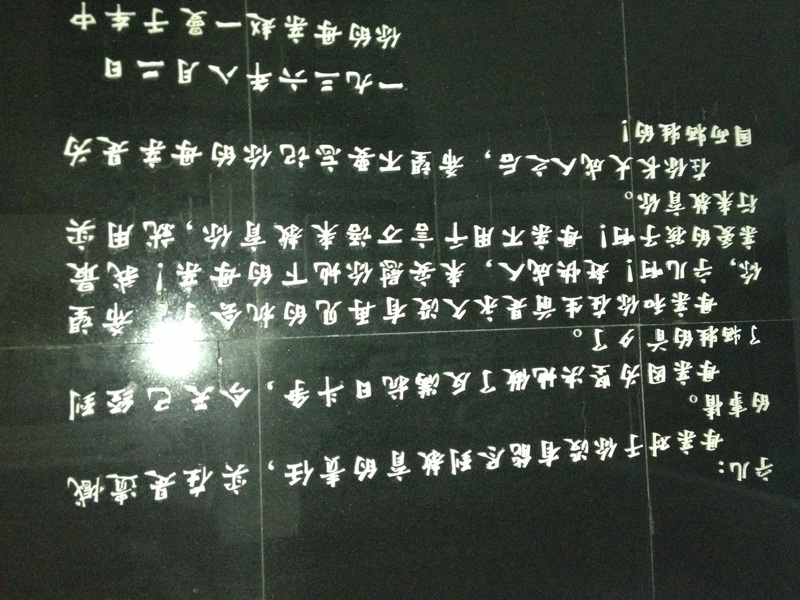 宁儿：
母亲对于你没有能尽到教育的责任，实在是遗憾
的事情。
母亲因为坚决地做了反满抗日斗争，今天已经到
了牺牲的前夕了。
母亲和你在生前是永久没有再见的机会了。希望
你，宁儿啊！赶快成人，来安慰你地下的母亲！我最
亲爱的孩子啊！母亲不用千言万语来教育你，就用实
行来教育你。
在你长大成人之后，希望不要忘记你的母亲是为
国而牺牲的！
一九三六年八月二日
你的母亲赵一曼于车中